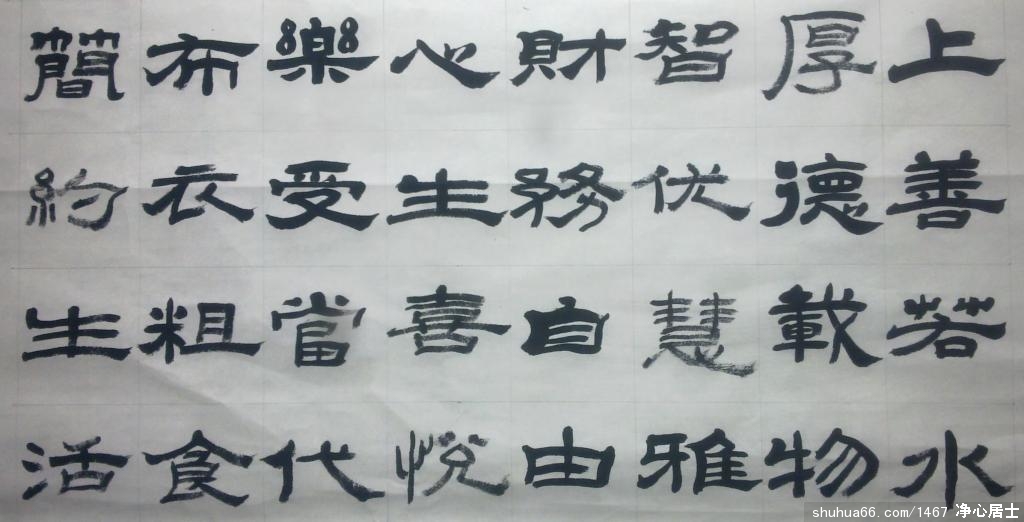 上善若水
厚德載物
智优慧雅
財務自由
心生喜悅
樂受當代
布衣粗食
簡約生活
shuhua66.com/1467 净心居士